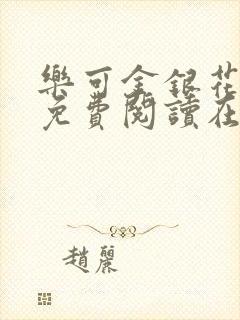 樂可金銀花
免費閱讀在
趙麗